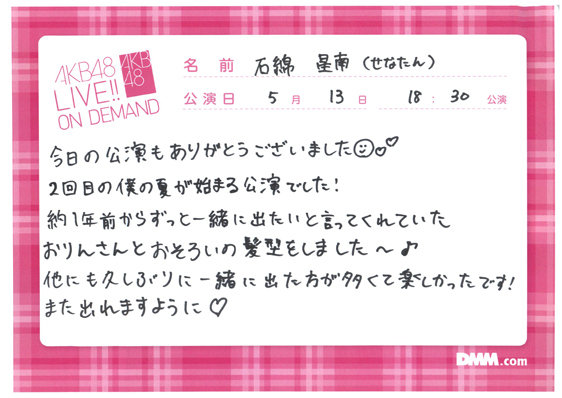 AKB48
LIVE!!
ON DEMAND
AKB
48
名前 石綿 星南 (せなたん)
公演日 5月 13日 18:30 公演
今日の公演もありがとうございました☺♡♡
2回目の僕の夏が始まる公演でした!
約1年前からずっと一緒に出たいと言ってくれていた
おりんさんとおそろいの髪型をしました〜♪
他にも久しぶりに一緒に出た方が多くて楽しかったです!
また出れますように♡
DMM.com